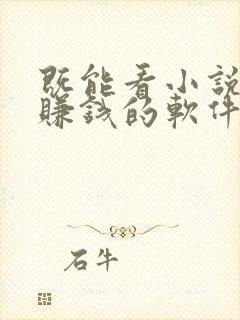 既能看小說
賺錢的軟件
石牛